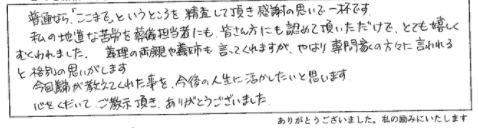 普通なら、"ここまで"というところを精査して頂き感謝の思いで一杯です
私の地道な苦労を 担当者にも、皆さん方にも認めて頂いただけで、とても嬉しく
むくわれました。 義理の両親や義姉も言ってくれますが、やはり専門家の方々に言われる
と格別の思いがします
今回 が教えてくれた事を、今後の人生に活かしたいと思います
心をくだいて、ご教示頂き、ありがとうございました
ありがとうございました。私の励みにいたします